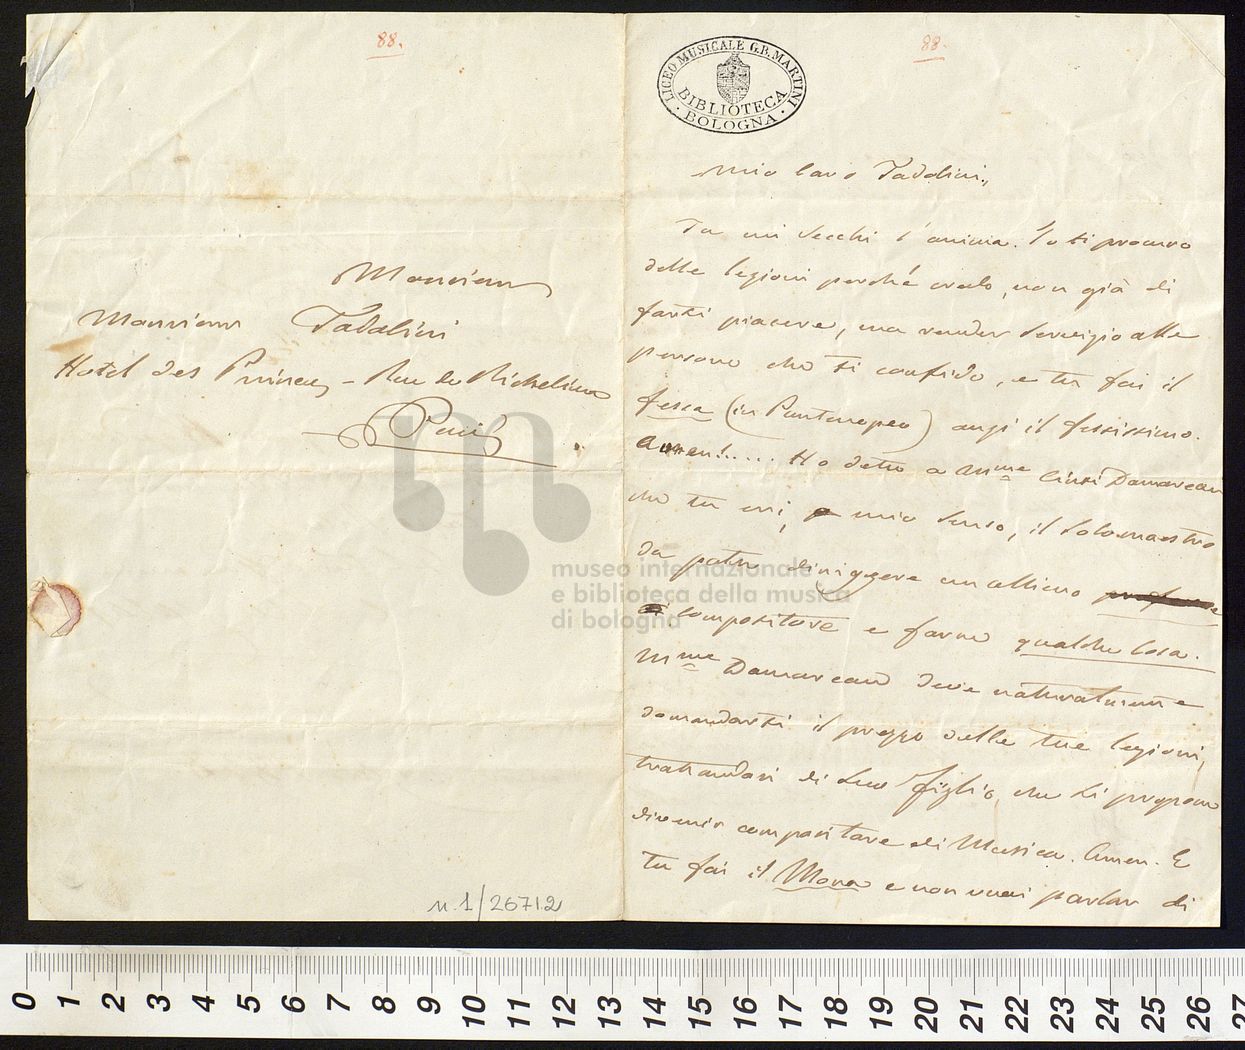 88.
Monsieur
Monsieur Tadolini
Hotel des Princes - Rue de Richelieu
Paris
n. 1/26712
88.
LICEO MUSICALE G.B. MARTINI
BIBLIOTECA
BOLOGNA
Mio Caro Tadolini,
Tu mi secchi l'anima. Io ti procuro
delle lezioni perché credo, non già di
farti piacere, ma render servigio alle
persone che ti confido, e tu fai il
fesca (in Partenopeo) anzi il fessissimo.
Amen!..... Ho detto a Mme Cinti Damoreau
che tu eri, a mio senso, il solo maestro
da poter diriggere un allievo
compositore e farne qualche cosa.
Mme Damoreau deve naturalmente
domandarti il prezzo delle tue lezioni,
trattandosi di suo figlio, che si propone
divenir compositore di Musica. Amen. E
tu fai il Mona e non vuoi parlar di
museo internazionale
e biblioteca della musica
di bologna
0 1 2 3 4 5 6 7 8 9 10 11 12 13 14 15 16 17 18 19 20 21 22 23 24 25 26 27